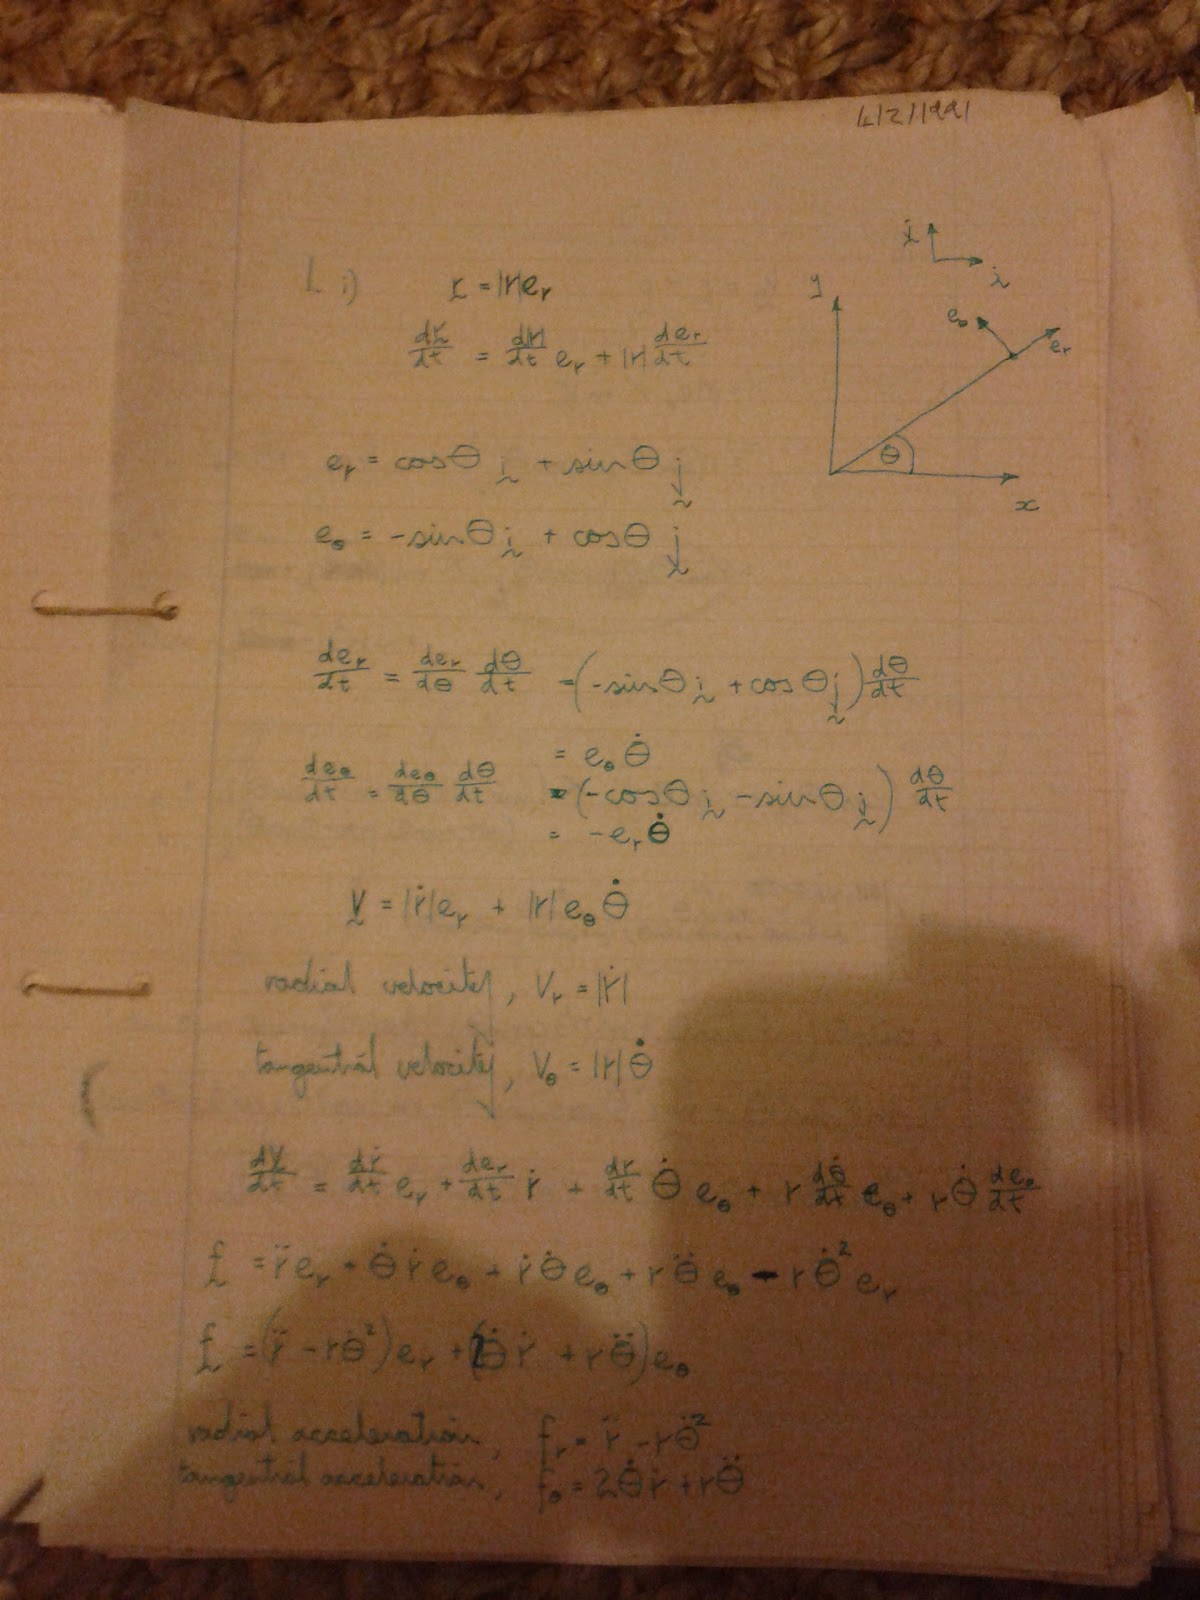 4/2/1991
1. i) r = |r|e_r
dr/dt = d|r|/dt e_r + |r| de_r/dt
e_r = cosθ i + sinθ j
e_θ = -sinθ i + cosθ j
j
i
y
e_θ
e_r
θ
x
de_r/dt = de_r/dθ dθ/dt = (-sinθ i + cosθ j) dθ/dt
= e_θ θ̇
de_θ/dt = de_θ/dθ dθ/dt = (-cosθ i - sinθ j) dθ/dt
= -e_r θ̇
V = |ṙ|e_r + |r|e_θ θ̇
radial velocity, V_r = |ṙ|
tangential velocity, V_θ = |r|θ̇
dV/dt = dṙ/dt e_r + de_r/dt ṙ + dr/dt θ̇ e_θ + r dθ̇/dt e_θ + rθ̇ de_θ/dt
f = r̈e_r + θ̇ṙe_θ + ṙθ̇e_θ + rθ̈e_θ - rθ̇²e_r
f = (r̈ - rθ̇²)e_r + (2θ̇ṙ + rθ̈)e_θ
radial acceleration, f_r = r̈ - rθ̇²
tangential acceleration, f_θ = 2θ̇ṙ + rθ̈